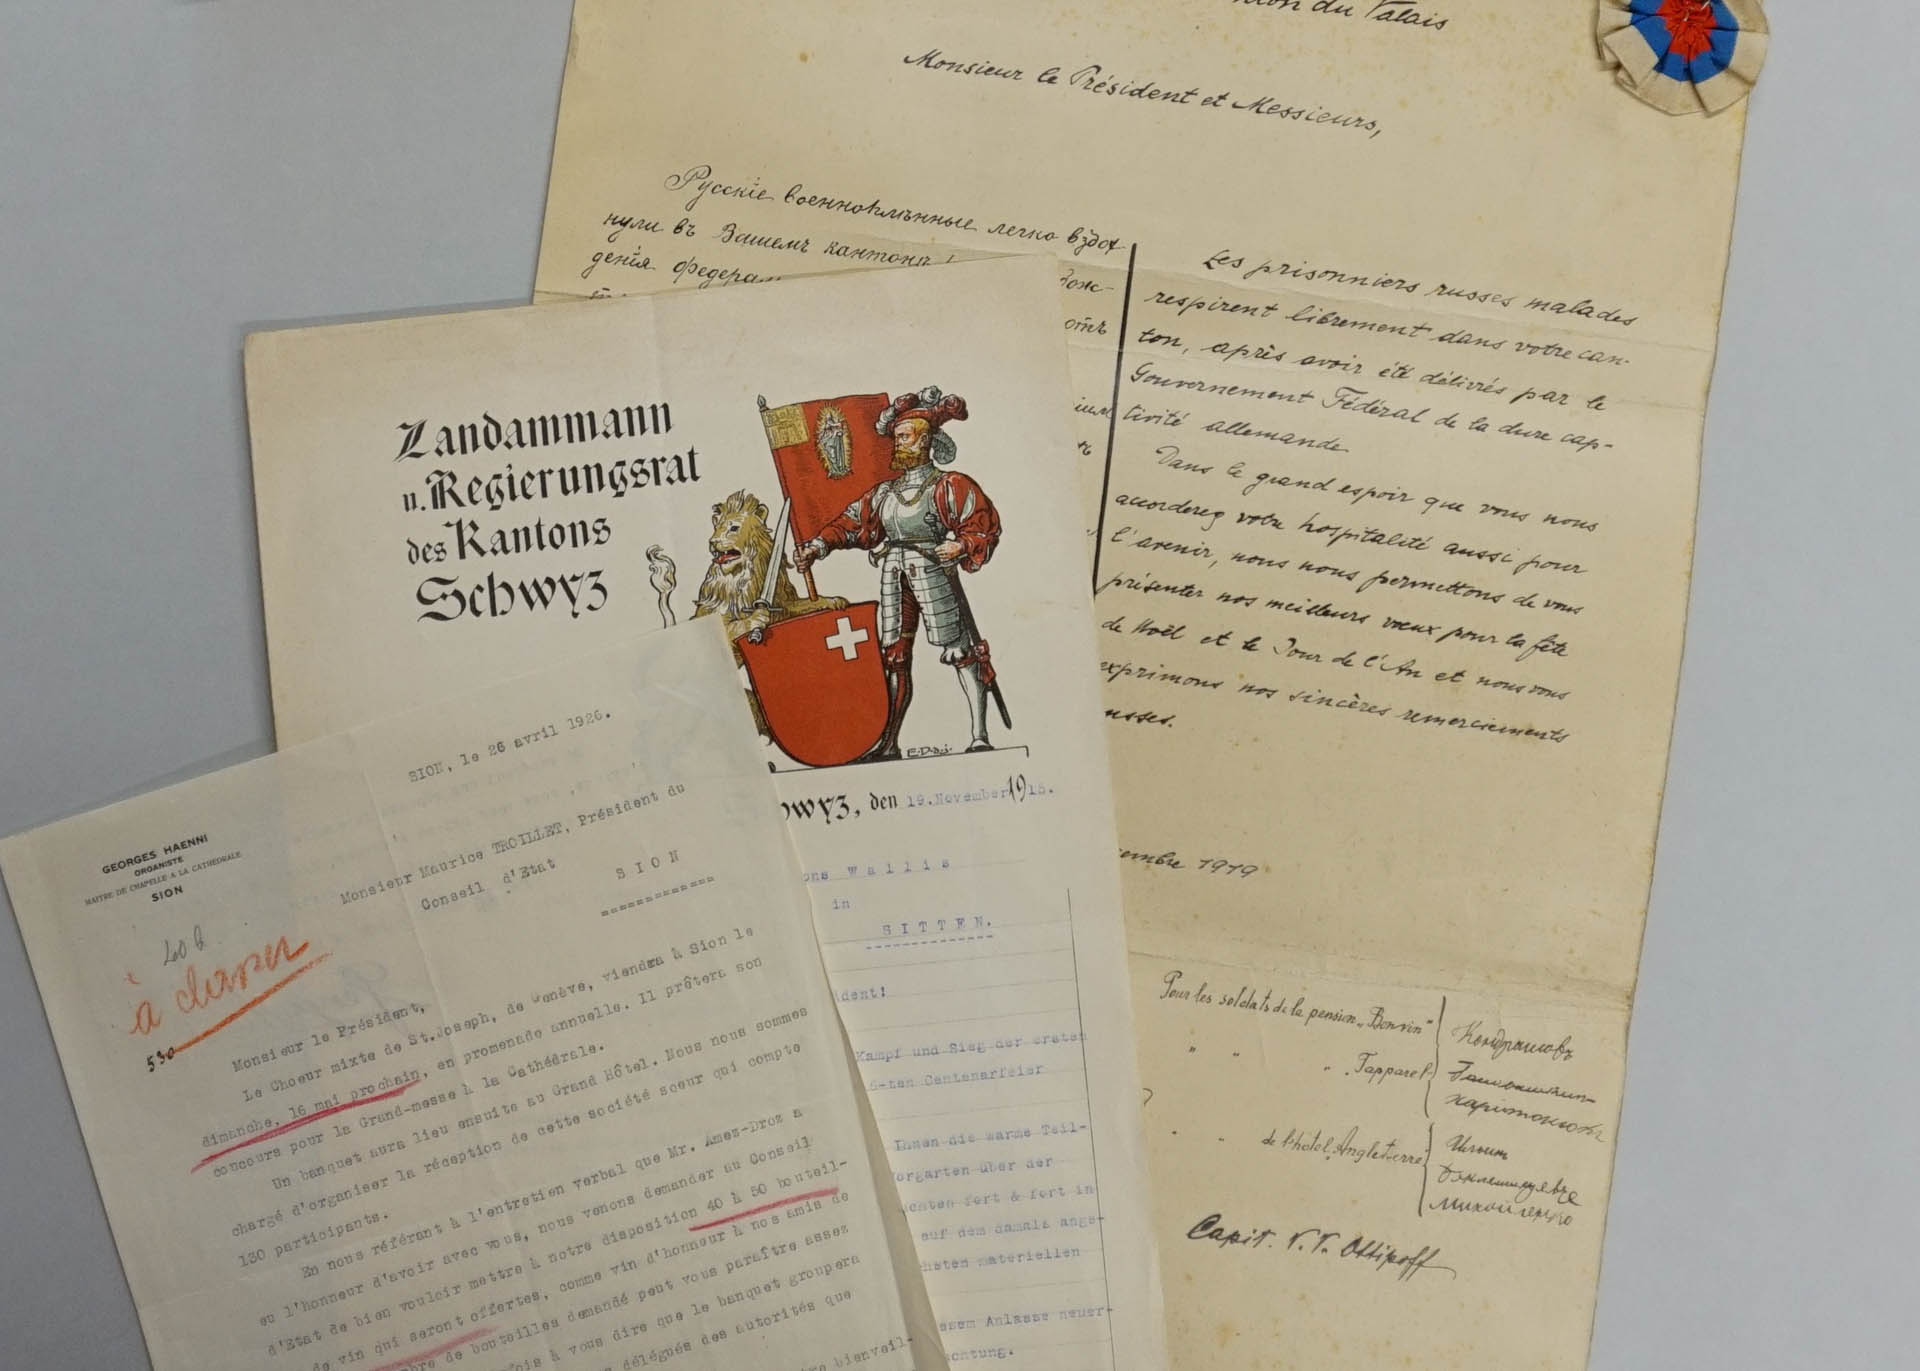 du Valais
Monsieur le Président et Messieurs,
Русскіе военноплѣнные легко вздох
нули въ Вашемъ кантонѣ
денія федера
Les prisonniers russes malades
respirent librement dans votre can-
ton, après avoir été délivrés par le
Gouvernement Fédéral de la dure cap-
tivité allemande.
Dans le grand espoir que vous nous
accorderez votre hospitalité aussi pour
l'avenir, nous nous permettons de vous
présenter nos meilleurs vœux pour la fête
de Noël et le Jour de l'An et nous vous
exprimons nos sincères remerciements
usses.
embre 1919
Pour les soldats de la pension „Bonvin"
" " " „Tapparel"
" " de l'hotel „Angleterre"
Кондрашовъ
Capit. V. V. Ottipoff
Landammann
u. Regierungsrat
des Kantons
Schwyz
E.D.a.j.
hwyz, den 19.November 1915.
ons Wallis
in
SITTEN.
ident!
Kampf und Sieg der ersten
6-ten Centenarfeier
Ihnen die warme Teil-
orgarten über der
chten fort & fort in
auf dem damals ange-
hsten materiellen
esem Anlasse neuer-
chtung.
GEORGES HAENNI
ORGANISTE
MAITRE DE CHAPELLE A LA CATHÉDRALE
SION
SION, le 26 avril 1926.
Monsieur Maurice TROILLET, Président du
Conseil d'Etat
SION
à classer
530
Monsieur le Président,
Le Choeur mixte de St.Joseph, de Genève, viendra à Sion le
dimanche, 16 mai prochain, en promenade annuelle. Il prêtera son
concours pour la Grand-messe à la Cathédrale.
Un banquet aura lieu ensuite au Grand Hôtel. Nous nous sommes
chargé d'organiser la réception de cette société soeur qui compte
130 participants.
En nous référant à l'entretien verbal que Mr. Amez-Droz a
eu l'honneur d'avoir avec vous, nous venons demander au Conseil
d'Etat de bien vouloir mettre à notre disposition 40 à 50 bouteil-
de vin qui seront offertes, comme vin d'honneur à nos amis de
bre de bouteilles demandé peut vous paraître assez
fois à vous dire que le banquet groupera
délégués des autorités que
bienveil-